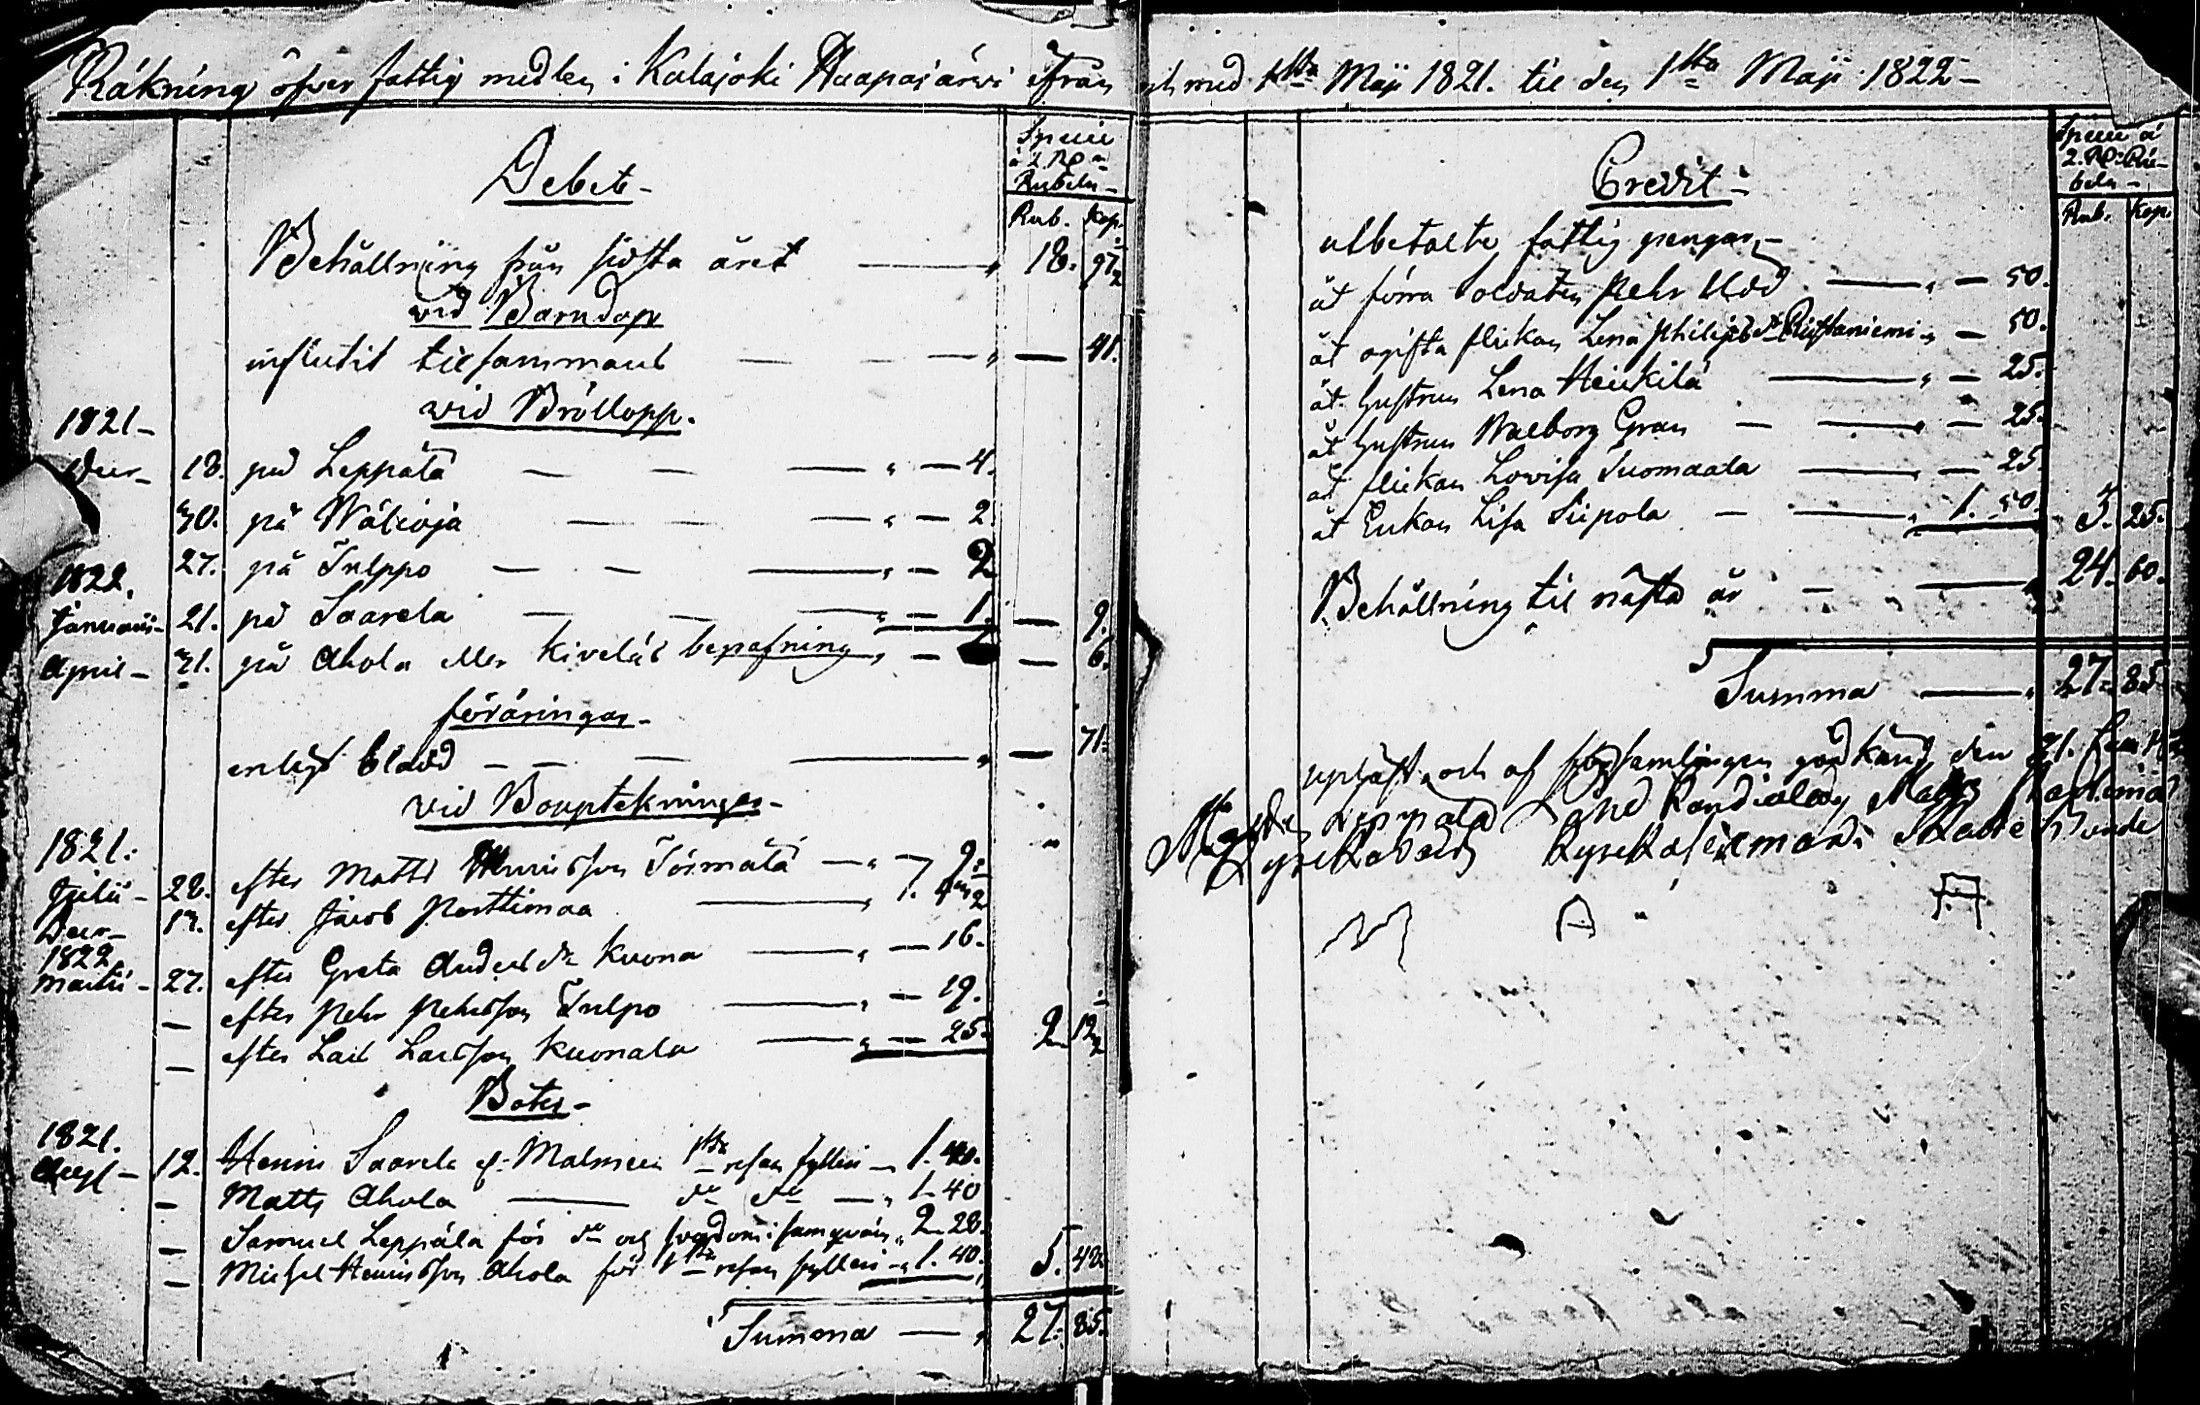 Räkning öfver fattig medlen i Kalajoki Haapajärwi ifrån och med 1sta Maji 1821. til den 1sta Maji 1822 -
Debet -
Specie
à 2 Rd
Rubeln -
Rub. Kop.
Behållning från sidsta året — 18. 97 1/2
vid Barndop
influtit tilsammans — — — — 41.
vid Bröllopp.
1821 -
Decr - 18. på Leppälä — — — " — 4.
30. på Wälioja — — — " — 2.
27. på Tulppo — — — " — 2
1822.
Januarii - 21. på Saarela — — — " — 1. — 9.
April - 21. på Ahola eller Kiveläs begrafning " — — 6.
föräringar -
enligt bladd — — — — " — 71.
vid Bouptekningar -
1821.
Julii - 28. efter Matts Hennisson Törmälä — " — 9.
Decr - 17. efter Jacob Porttimaa — " 1.
1822.
Martii - 27. efter Greta Andersdr Kuona — " — 16.
— efter Pehr Pehrsson Tulpo — " — 19.
— efter Lars Larsson Kuonala — " — 25. 2. 12 1/2
Böter -
1821.
Augt - 12. Henric Saarela 1sta resan fylleri — 1. 40.
— Matts Ahola — do do — " 1. 40
— Samuel Leppälä för do och 2. 28.
— Michel Henrisson Ahola för 1sta resan fylleri — " 1. 40. 5. 48.
Summa — " 27. 85.
Credit -
Specie à
2. Rd: Ru-
beln -
Rub. Kop.
utbetalte fattig pengar, -
åt förra Soldaten Pehr Mod — " — 50.
åt ogifta flickan Lena Philipsdr Ristaniemi " — 50.
åt hustrun Lena Heikilä — " — 25.
åt hustrun Walborg Gran — — " — 25.
åt flickan Lovisa Tuomaala — " — 25.
åt Enkan Lisa Siipola — — " 1. 50. 3. 25.
Behållning til nästa år — — " 24. 60.
Summa — " 27. 85.
upläst och af församlingen godkänd den 21.
Leppälä And Matts
M A